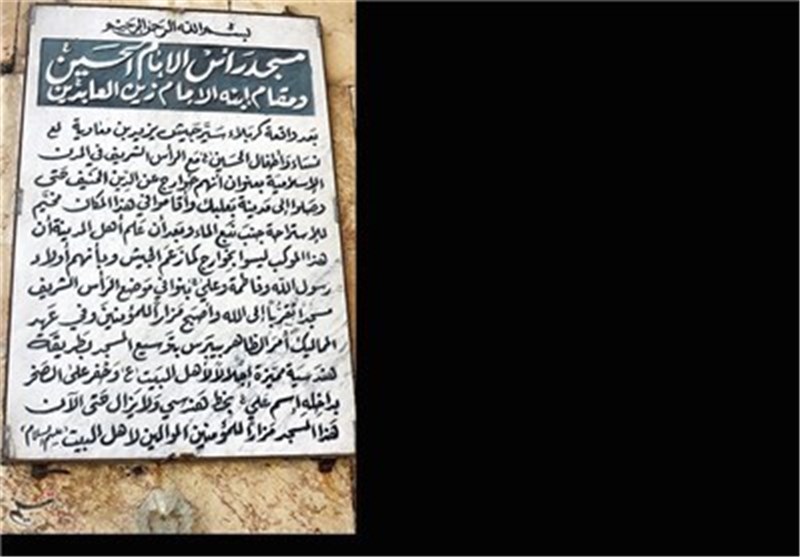 بسم الله الرحمن الرحيم
مسجد رأس الإمام الحسين ع
ومقام ابنه الإمام زين العابدين ع
بعد واقعة كربلاء سيّر جيش يزيد بن معاوية لع
نساء وأطفال الحسين ع مع الرأس الشريف في المدن
الإسلامية بعنوان أنهم خوارج عن الدين الحنيف حتى
وصلوا إلى مدينة بعلبك وأقاموا في هذا المكان مخيّم
للإستراحة جنب نبع الماء وبعد أن علم أهل المدينة أن
هذا الموكب ليسوا بخوارج كما زعم الجيش وبأنهم أولاد
رسول الله وفاطمة وعلي ع بنوا في موضع الرأس الشريف
مسجداً تقرّباً إلى الله وأصبح مزاراً للمؤمنين وفي عهد
المماليك أمر الظاهر بيبرس بتوسيع المسجد بطريقة
هندسية مميزة إجلالاً لأهل البيت ع وحفر على الصخر
بداخله إسم علي ع بخط هندسي ولا يزال حتى الآن
هذا المسجد مزاراً للمؤمنين الموالين لأهل البيت عليهم السلام